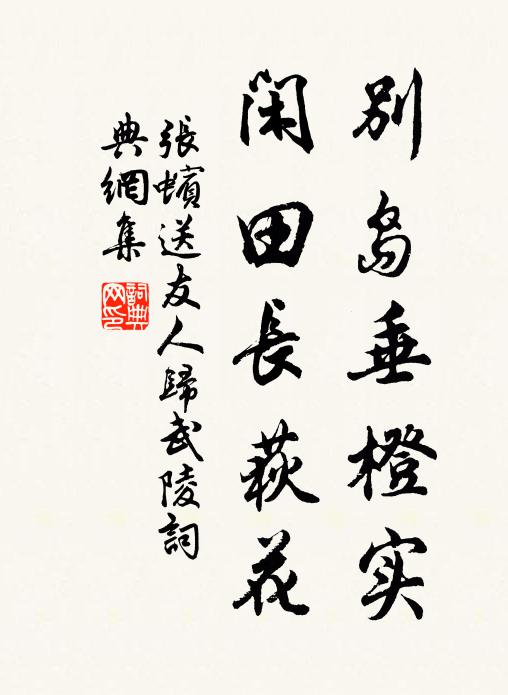 别岛垂橙实
闲田長荻花
張蠙送友人歸武陵詞
典網集
詞典
网印